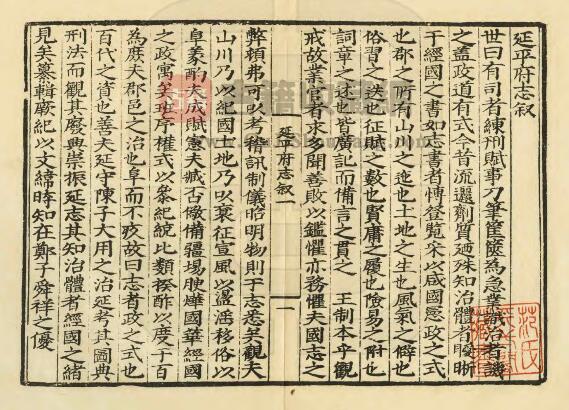 延平府志叙
世曰有司者練刑賦事刀筆筐篋為急業識治者譏
之盖政道有式今昔流邅劑質廼殊知治體者殷晣
于經國之書如志書者博登覧采以咸國愿政之式
也郡之所有山川之迮也土地之生也風氣之僻也
俗習之迭也征賦之數也賢庸之履也險易之附也
詞章之述也皆廣記而備言之貫之 王制本乎觀
戒故業官者求多聞善敗以鑑懼亦務懼夫國志之
延平府志叙 一
弊頼弗可以考稽訊制儀昭明物則于志悉矣觀夫
山川乃以紀國土地乃以衷征宣風以盪涵移俗以
阜彖酌夫成賦憲夫臧否儆備疆場腴燁國華經國
之政寓矣班序權式以叅紀綂比類揆酢以度于百
為庶夫郡邑之治也阜而不疚故曰志者政之式也
百代之資也善夫延守陳子大用之治延考其圖典
刑法而觀其廢典崇振延志其知治體者經國之緒
見矣纂輯厥紀以文締時知在鄭子舜祥之優
范氏